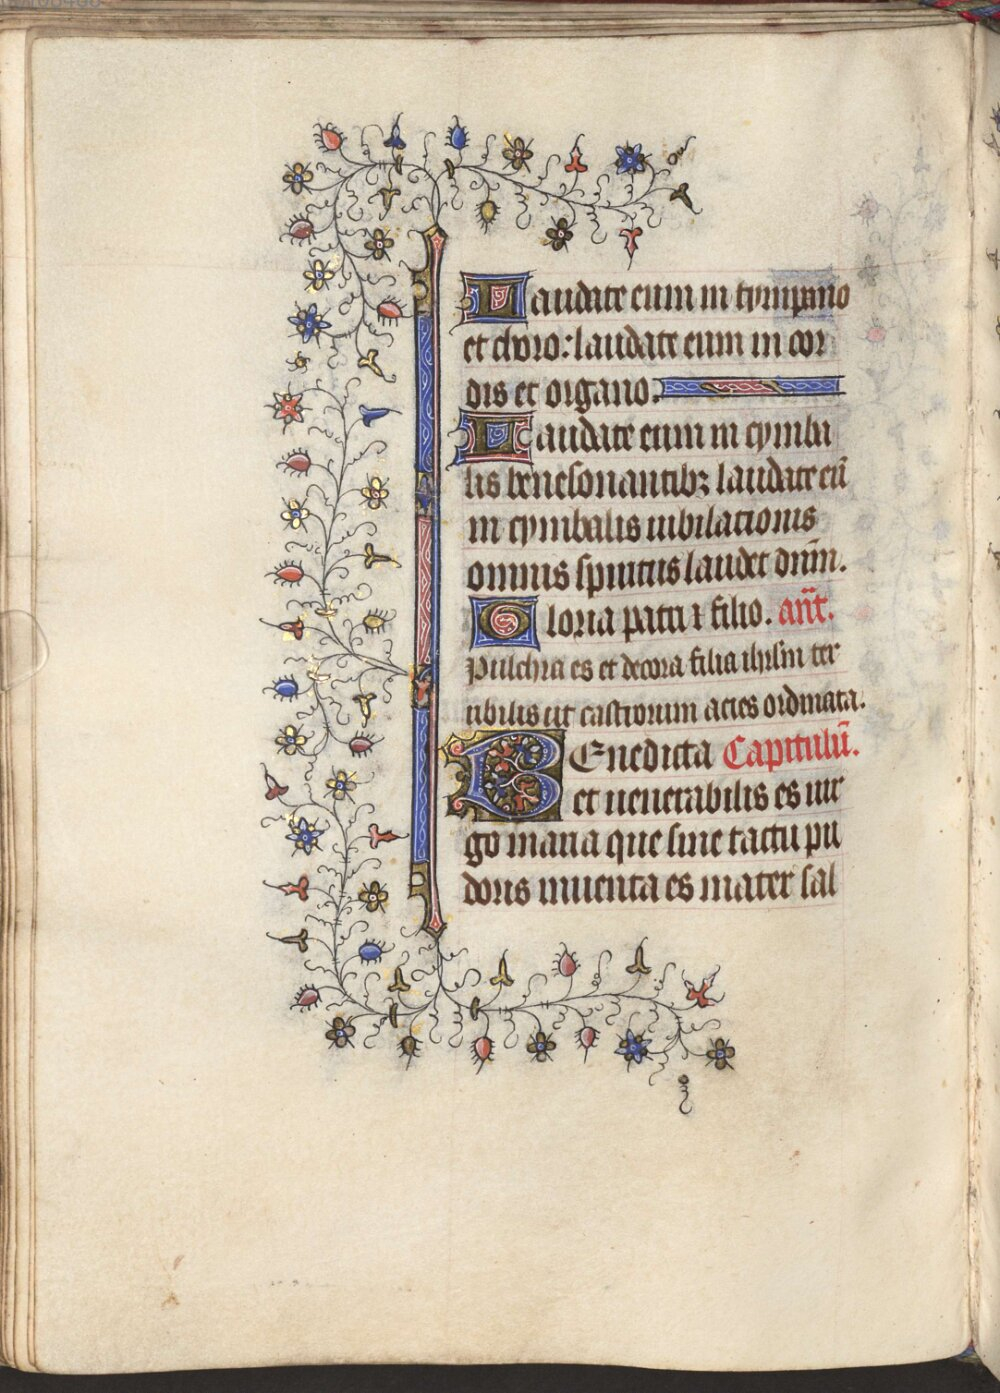 Laudate eum in tympano
et choro: laudate eum in cor
dis et organo.
Laudate eum in cymba
lis benesonantibꝫ laudate eū
in cymbalis iubilationis
omnis spiritus laudet dn̄m.
Gloria patri ⁊ filio. an̄t.
Pulchra es et decora filia ihrlm ter
ribilis ut castrorum acies ordinata.
BEnedicta Capitulū.
et uenerabilis es uir
go maria que sine tactu pu
doris inuenta es mater sal